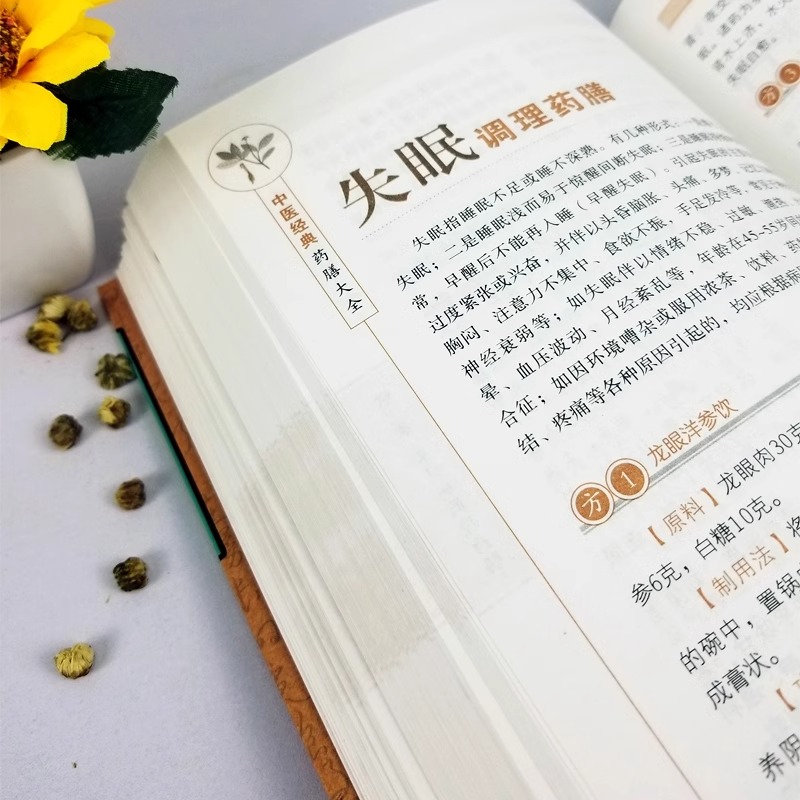 中医经典药膳大全
失眠调理药膳
失眠指睡眠不足或睡不深熟。有几种形式：一
失眠；二是睡眠浅而易于惊醒间断失眠；三是睡眠
常，早醒后不能再入睡（早醒失眠）。引起失眠
过度紧张或兴奋，并伴以头昏脑胀、头痛、多梦、记
胸闷、注意力不集中、食欲不振，手足发冷等，常见于
神经衰弱等；如失眠伴以情绪不稳、过敏、潮热
晕、血压波动、月经紊乱等，年龄在45~55岁
合征；如因环境嘈杂或服用浓茶、饮料、药
结、疼痛等各种原因引起的，均应根据病
方1 龙眼洋参饮
【原料】龙眼肉30克
参6克，白糖10克。
【制用法】将
的碗中，置锅
成膏状。
养阴
失眠自愈。
方3